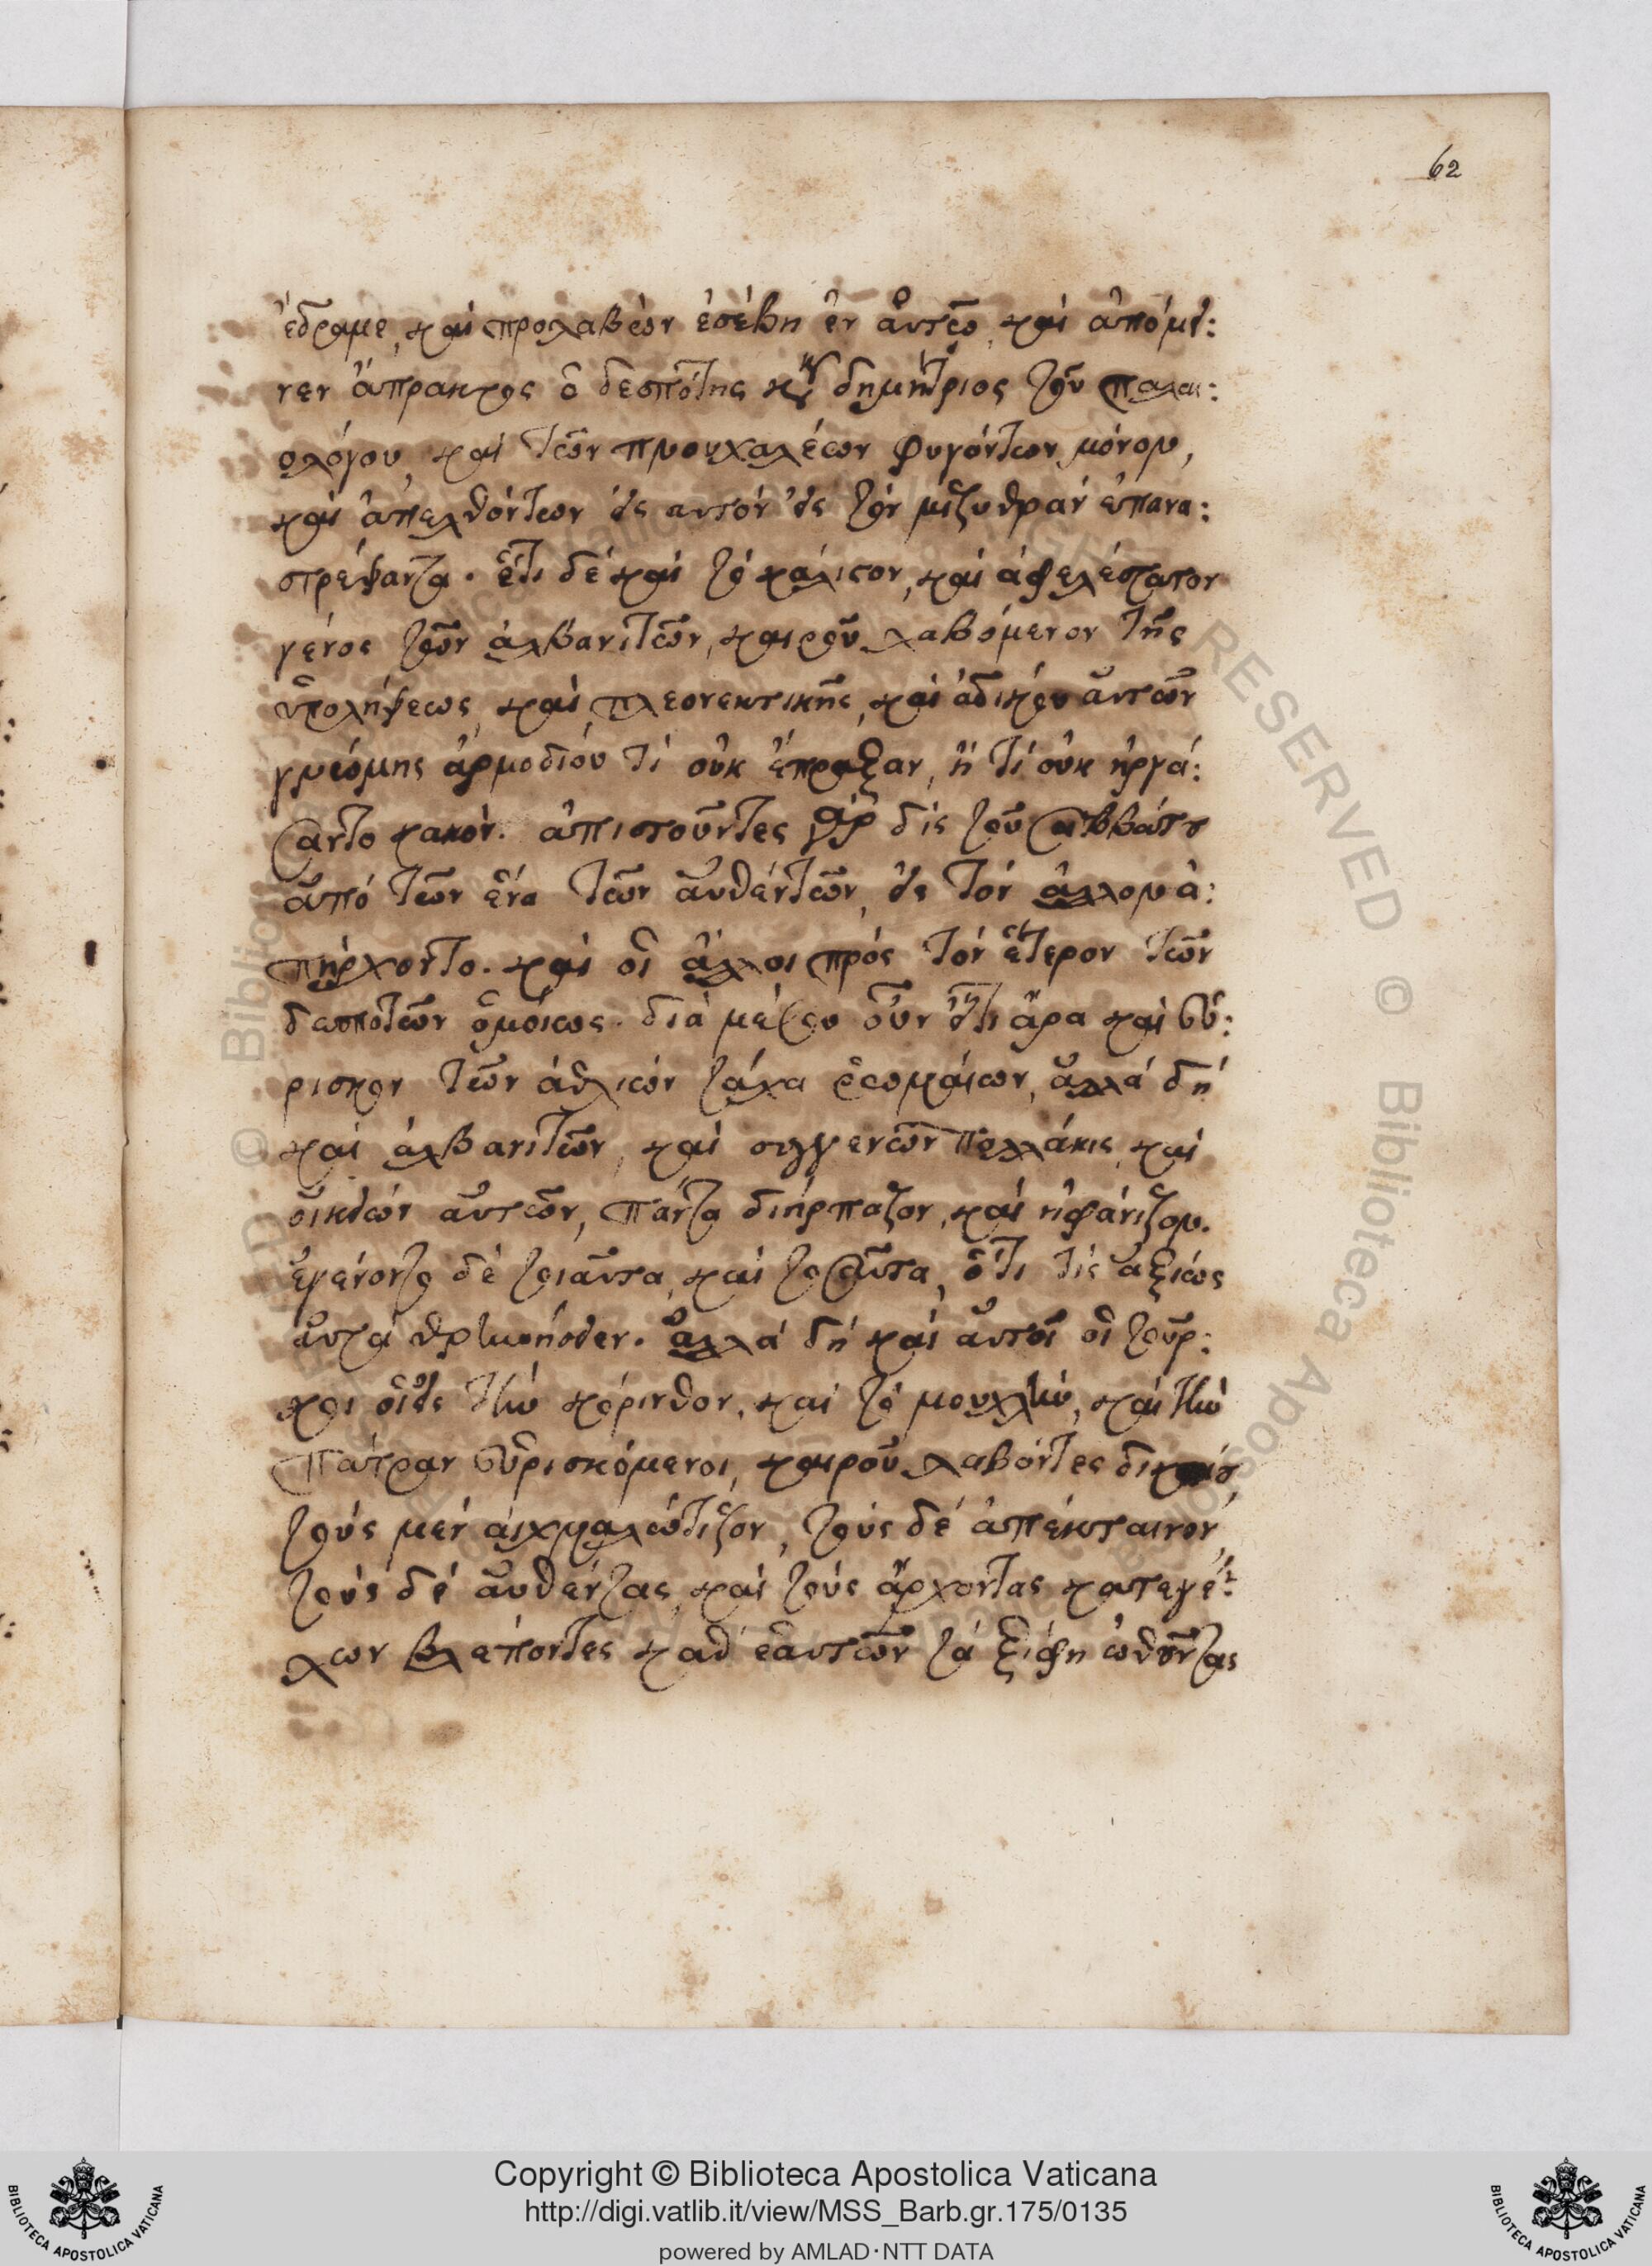 62
ἔδραμε, καὶ προλαβὼν ἐσέβη ἐν αὐτῶ, καὶ ἀπόμει:
νεν ἄπρακτος ὁ δεσπότης κὺρ δημήτριος τοῦ παλαι:
ολόγου, καὶ τῶν προυχαλέων φυγόντων μόνον,
καὶ ἀπελθόντων εἰς αυτόν εἰς τὸν μιζυθράν ἐπανα:
στρέψαντα. ἔτι δέ καὶ τὸ κάλιστον, καὶ ἀφελέστατον
γένος τῶν ἀλβανιτῶν, καιροῦ λαβόμενον τῆς
ὑπολήψεως, καὶ πλεονεκτικῆς, καὶ ἀδίκου αὐτῶν
γνώμης ἁρμοδίου τί οὐκ ἔπραξαν, ἢ τί οὐκ ἠργά:
σαντο κακόν. ἀπιστοῦντες γὰρ δὶς τοῦ σαββάτου
ἀπό τῶν ἕνα τῶν αὐθέντῶν, εἰς τόν ἄλλον ἀ:
πήρχοντο. καὶ οἱ ἄλλοι πρός τόν ἕτερον τῶν
δεσποτῶν ὁμοίως. διὰ μέσου οὖν ὅτι ἄρα καὶ εὕ:
ρισκον τῶν ἀθλιών τάχα ῥωμαίων, ἀλλά δή
καὶ ἀλβανιτῶν, καὶ συγγενῶν πολλάκις, καὶ
οἰκείων αὐτῶν, πάντα διήρπαζον, καὶ ἠφάνιζον.
ἐγένοντο δὲ τοιαῦτα, καὶ τοσαῦτα, ὅτι τίς ἀξίως
αὐτά θρηνήσειεν. ἀλλά δή καὶ αὐτοί οἱ τοῦρ:
κοι οἱ εἰς τὴν κόρινθον, καὶ τὸ μουχλὴν, καὶ τὴν
πάτραν εὑρισκόμενοι, καιροῦ λαβόντες
τοὺς μέν αἰχμαλώτιζον, τοὺς δέ ἀπέκταινον,
τοὺς δέ αὐθέντας, καὶ τοὺς ἄρχοντας κατεγέ:
λων βλέποντες καθ' ἑαυτῶν τά ξίφη ὠθοῦντας
Copyright © Biblioteca Apostolica Vaticana
http://digi.vatlib.it/view/MSS_Barb.gr.175/0135
powered by AMLAD·NTT DATA